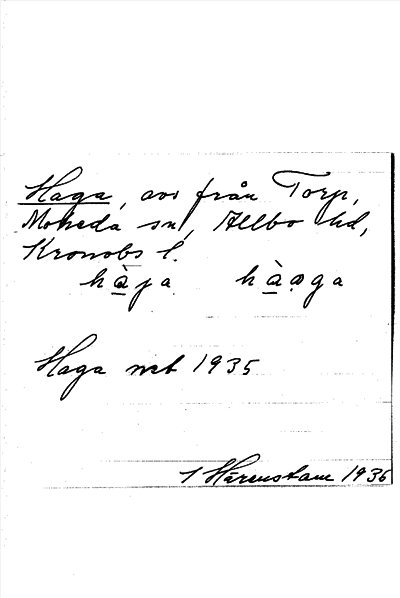 Haga, avs från Torp,
Moheda sn, Allbo hd,
Kronobs l.
hàga hàaga
Haga mtb 1935
1 Härenstam 1936